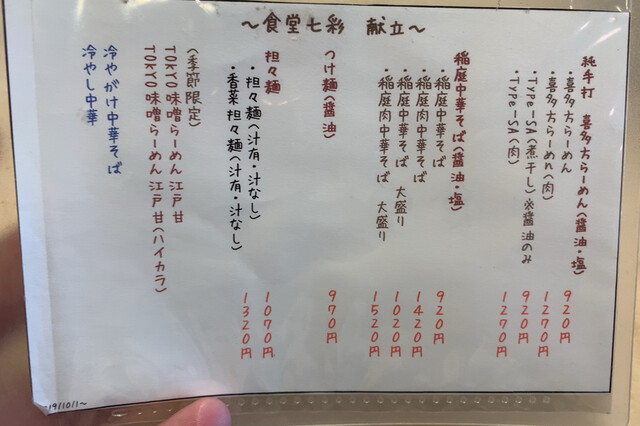 ～食堂七彩 献立～
純手打 喜多方らーめん(醤油・塩)
・喜多方らーめん 920円
・喜多方らーめん(肉) 1270円
・Type-SA(煮干し)※醤油のみ 920円
・Type-SA(肉) 1270円
稲庭中華そば(醤油・塩)
・稲庭中華そば 920円
・稲庭肉中華そば 1420円
・稲庭中華そば 大盛り 1020円
・稲庭肉中華そば 大盛り 1520円
つけ麺(醤油) 970円
担々麺
・担々麺(汁有・汁なし) 1070円
・香菜 担々麺(汁有・汁なし) 1320円
(季節限定)
TOKYO味噌らーめん 江戸甘
TOKYO味噌らーめん 江戸甘(ハイカラ)
冷やがけ中華そば
冷やし中華
19/10/1～